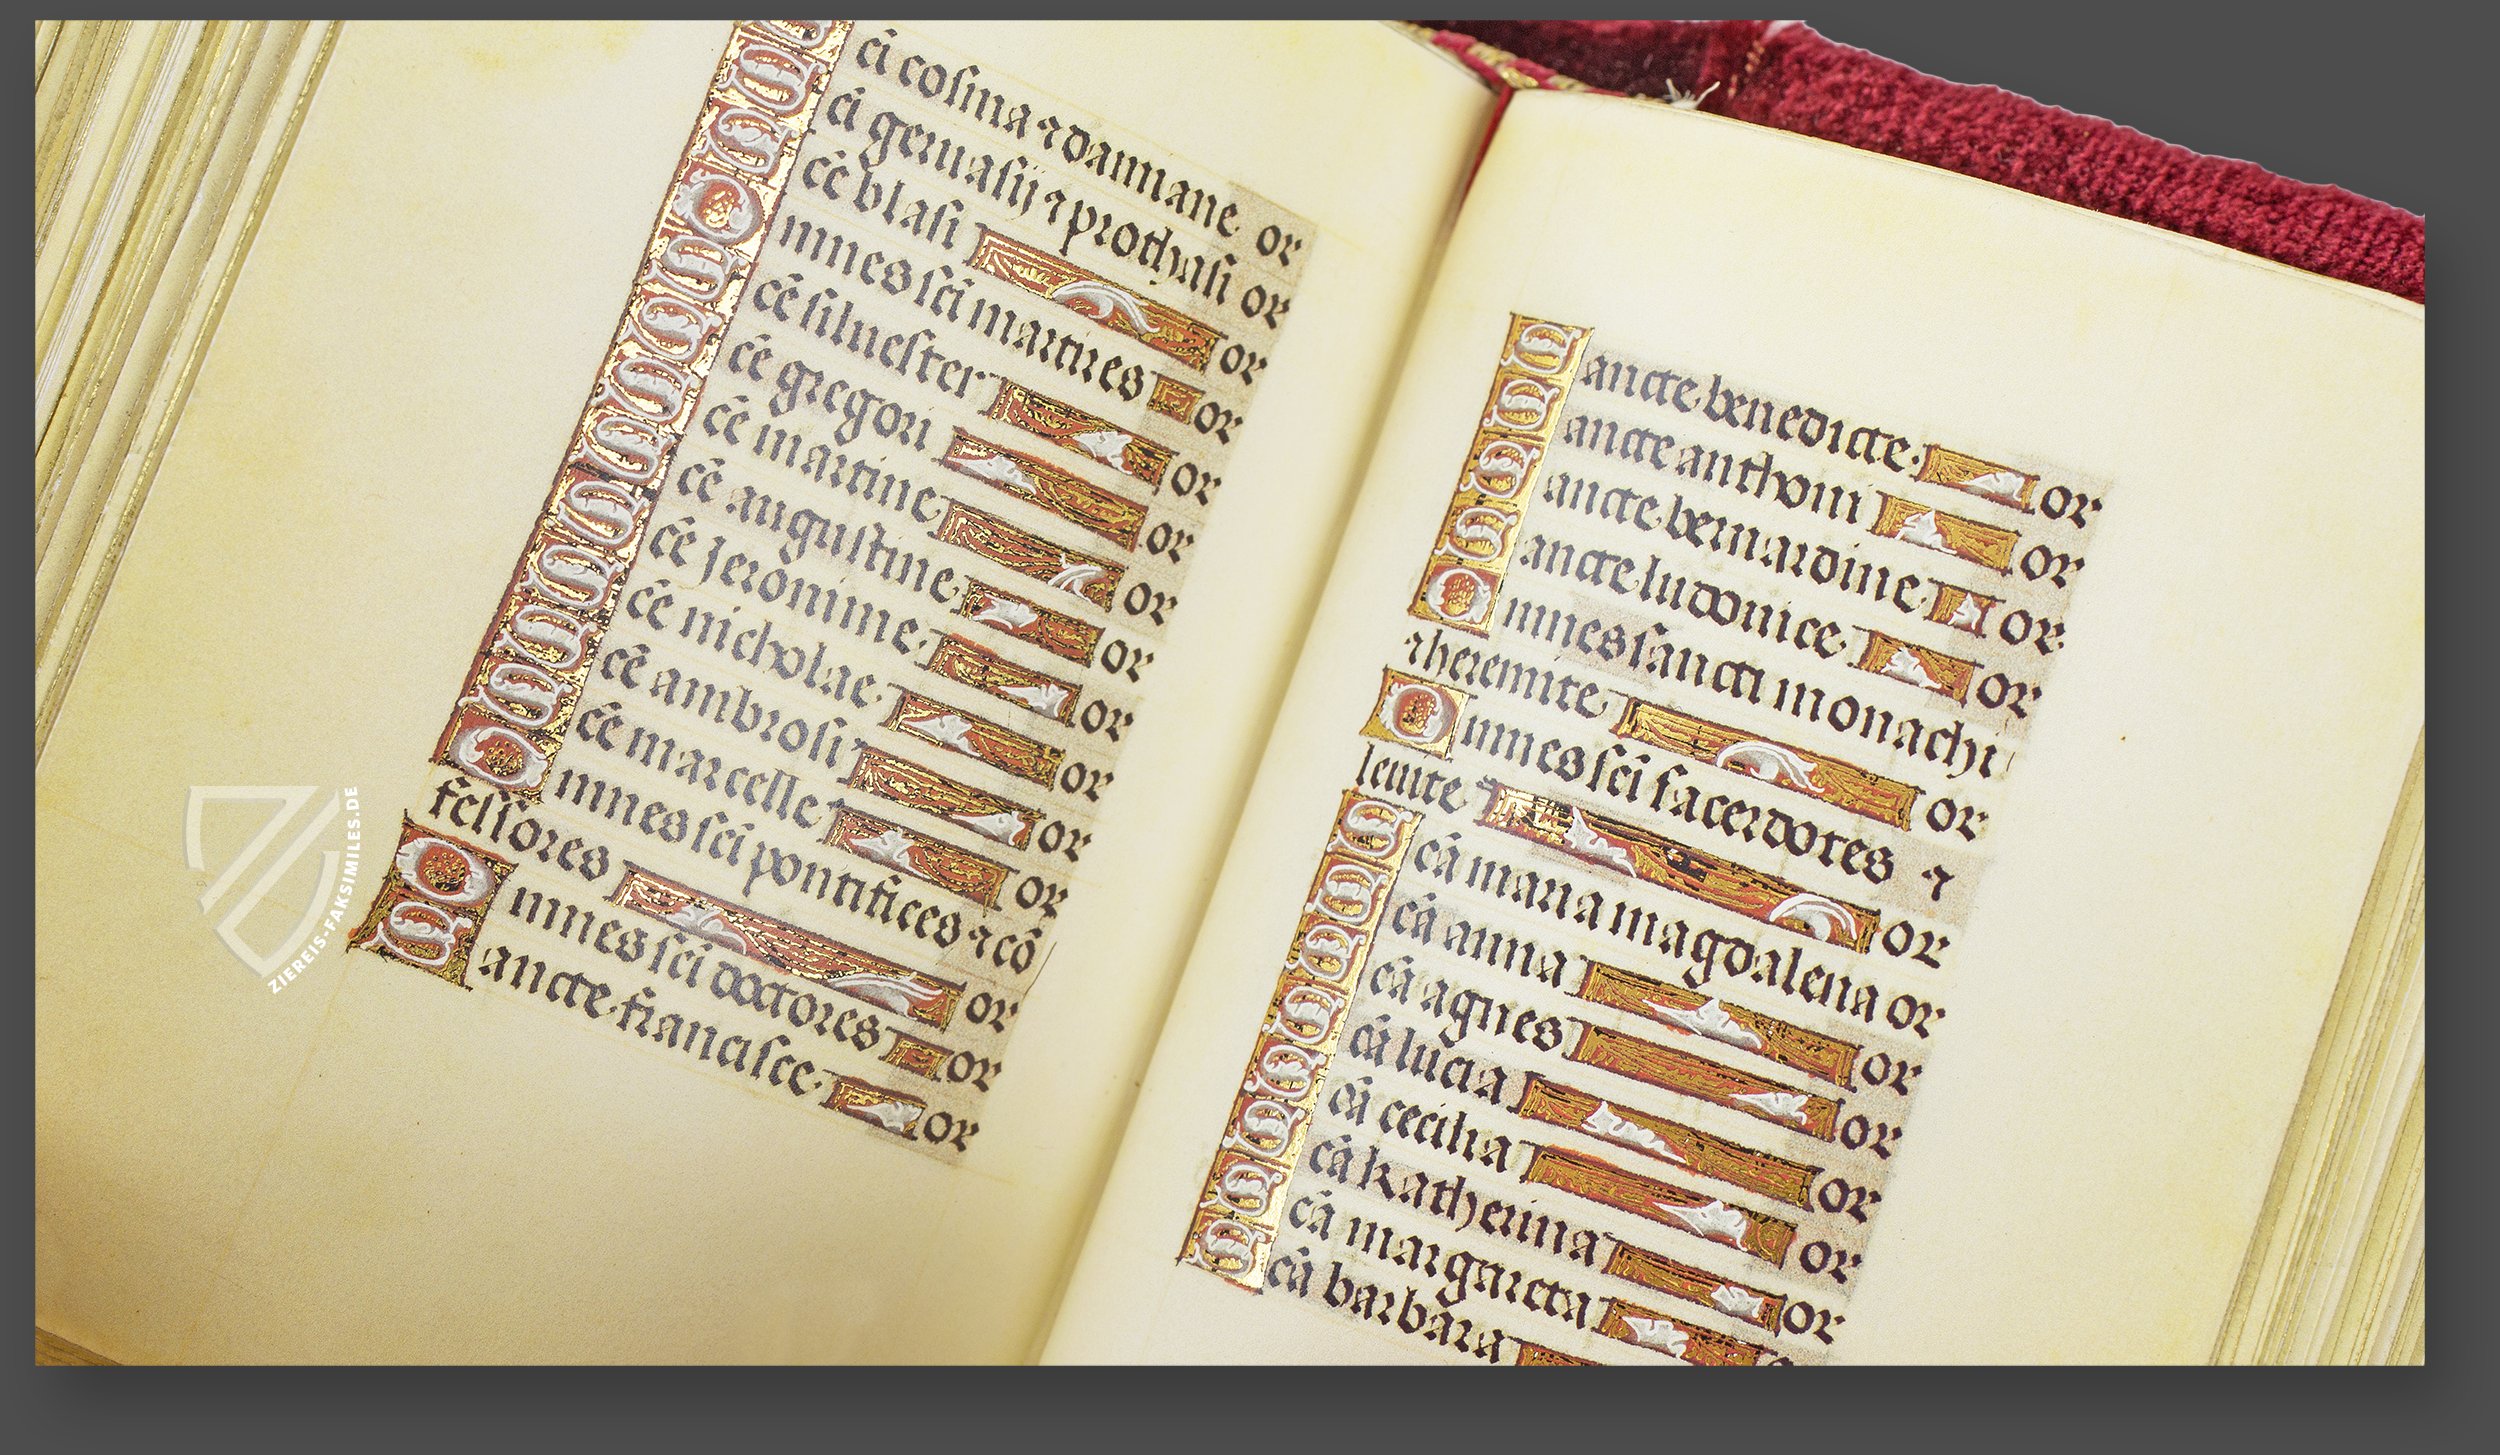 Sci cosma ⁊ damiane or
Sci geruasij ⁊ prothasi or
Scē blasi or
Omnes sci martires or
Scē siluester or
Scē gregori or
Scē martine or
Scē augustine or
Scē jeronime or
Scē nicholae or
Scē ambrosi or
Scē marcelle or
Omnes sci pontifices ⁊ cō
fessores or
Omnes sci doctores or
Sancte francisce or
Sancte benedicte or
Sancte anthoni or
Sancte bernardine or
Sancte ludouice or
Omnes sancti monachi
⁊ heremite or
Omnes sci sacerdotes ⁊
leuite or
Scā maria magdalena or
Scā anna or
Scā agnes or
Scā lucia or
Scā cecilia or
Scā katherina or
Scā margareta
Scā barbara
ZIEREIS-FAKSIMILES.DE